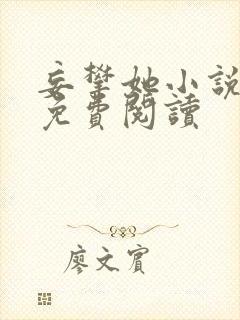 妄攀她小說
免費閱讀
廖文賓